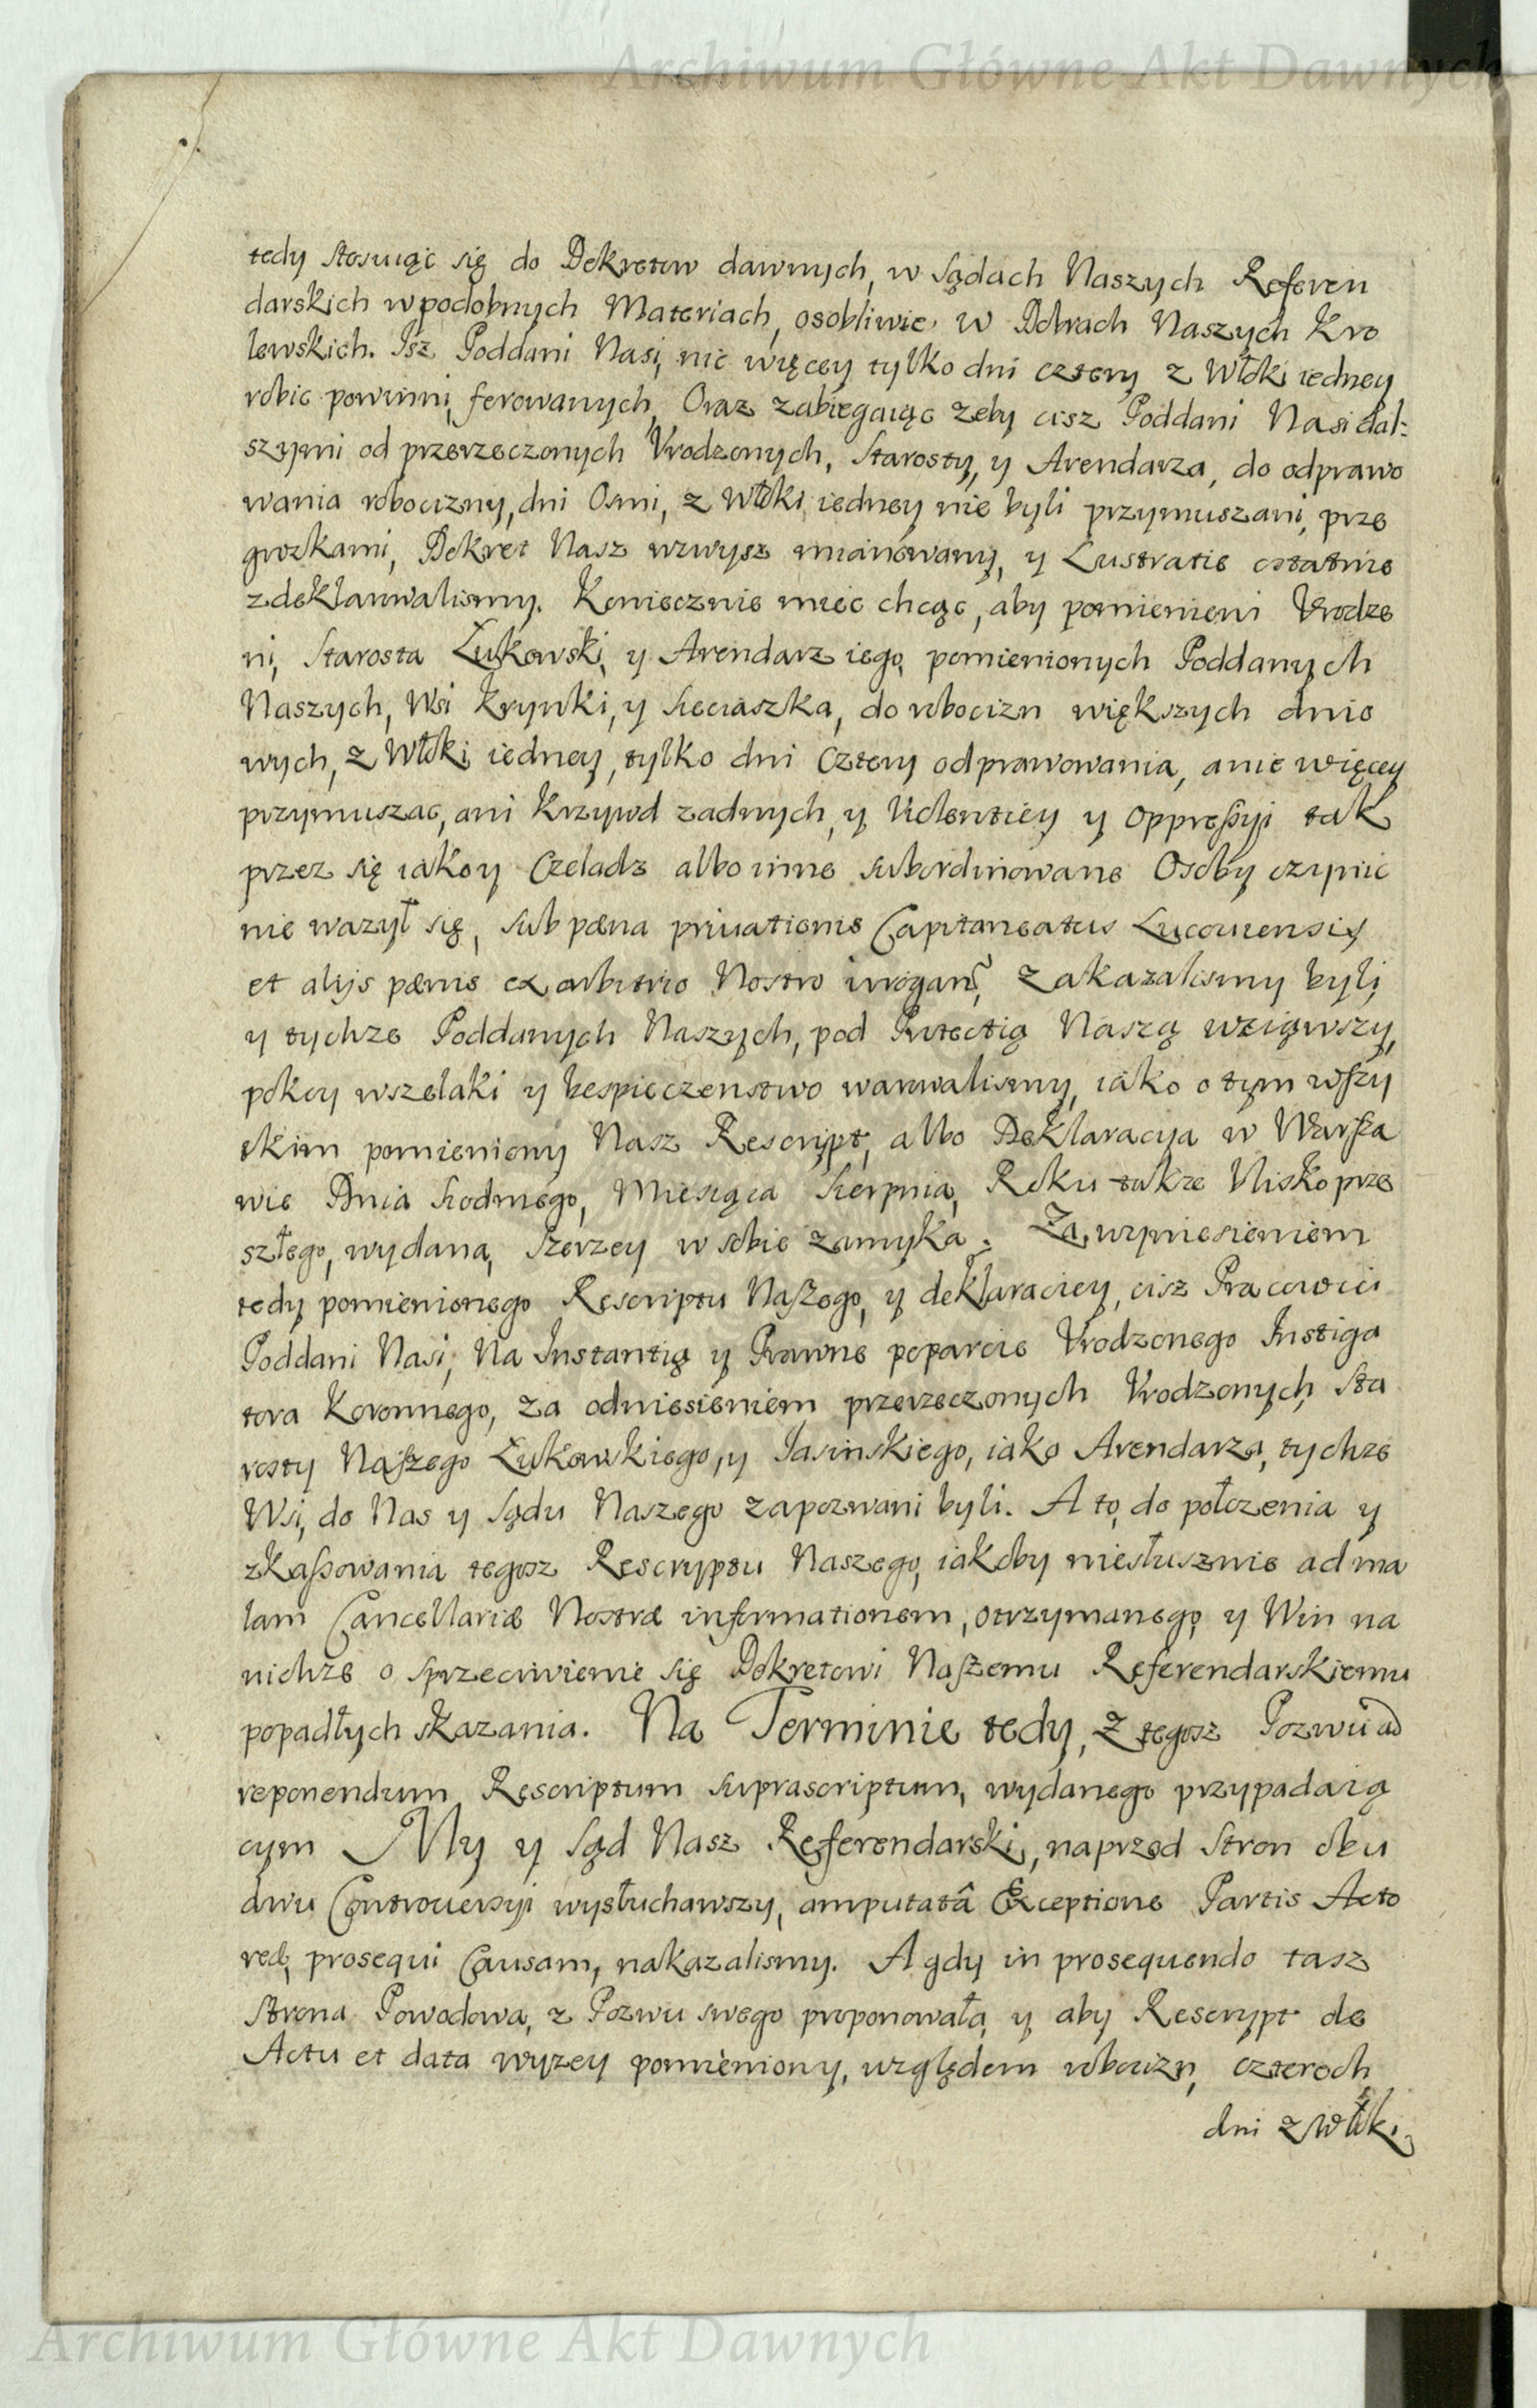 Archiwum Główne Akt Dawnych
tedy stosuiąc się do Dekretow dawnych, w Sądach Naszych Referen
darskich w podobnych Materiach, osobliwie w Dobrach Naszych Kro
lewskich. Isz Poddani Nasi, nic więcey tylko dni cztery z Włoki iedney
robic powinni, ferowanych, Oraz zabiegaiąc zeby cisz Poddani Nasi dal:
szymi od przerzeczonych Vrodzonych, Starosty, y Arendarza, do odprawo
wania robocizny, dni Osmi, z Włoki iedney nie byli przymuszani, prze
grozkami, Dekret Nasz wzwysz mianowany, y Lustratie ostatnie
zdeklarowalismy. Koniecznie miec chcąc, aby pomienieni Vrodze
ni, Starosta Łukowski, y Arendarz iego, pomienionych Poddanych
Naszych, Wsi Krynki, y Sieciaszka, do robocizn większych dnio
wych, z Włoki iedney, tylko dni Cztery odprawowania, a nie więcey
przymuszac, ani Krzywd zadnych, y Violentiey y Oppressyi tak
przez się iako y Czeladz albo inne subordinowane Osoby czynic
nie wazył się, sub pæna priuationis Capitaneatus Lucouiensis
et alijs pænis ex arbitrio Nostro irrogan̄, zakazalismy byli,
y tychze Poddanych Naszych, pod Protectią Naszą wziąwszy,
pokoy wszelaki y bespieczenstwo warowalismy, iako o tym wszy
stkim pomieniony Nasz Rescript, albo Deklaracyia w Warsza
wie Dnia Siodmego, Miesiąca Sierpnia, Roku takze Blisko prze
szłego, wydana, szerzey w sobie zamyka. Za wyniesieniem
tedy pomienionego Rescriptu Naszego, y deklaraciey, cisz Pracowici
Poddani Nasi, Na Instantią y Prawne poparcie Vrodzonego Instiga
tora Koronnego, za odniesieniem przerzeczonych Vrodzonych, Sta
rosty Naszego Łukowskiego, y Jasinskiego, iako Arendarza, tychze
Wsi, do Nas y Sądu Naszego zapozwani byli. A to, do połozenia y
zkassowania tegosz Rescryptu Naszego, iakoby niesłusznie ad ma
lam Cancellariæ Nostræ informationem, otrzymanego, y Win na
nichze o sprzeciwienie się Dekretowi Naszemu Referendarskiemu
popadłych skazania. Na Terminie tedy, z tegosz Pozwu ad
reponendum Rescriptum suprascriptum, wydanego przypadaią
cym My y Sąd Nasz Referendarski, naprzod Stron obu
dwu Controuersyi wysłuchawszy, amputatâ Exceptione Partis Acto
reæ, prosequi Causam, nakazalismy. A gdy in prosequendo tasz
Strona Powodowa, z Pozwu swego proponowała, y aby Rescrypt de
Actu et data wyzey pomieniony, względem robocizn, czteroch
dni z Włoki
Archiwum Główne Akt Dawnych